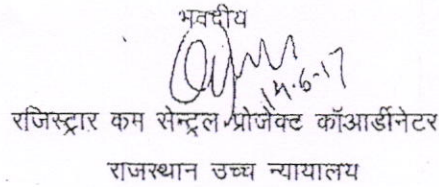 भवदीय
14.6.17
रजिस्ट्रार कम सेन्ट्रल प्रोजेक्ट कॉआर्डीनेटर
राजस्थान उच्च न्यायालय